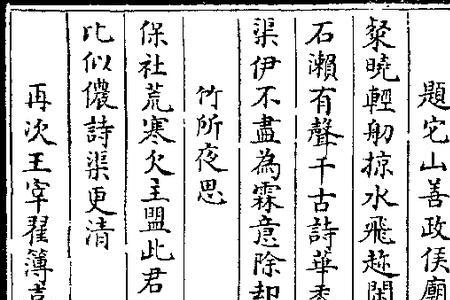 題它山善政侯廟
粲曉輕舠掠水飛趂閑
石瀨有聲千古詩華
渠伊不盡為霖意除却
竹所夜思
保社荒寒欠主盟此君
比似儂詩渠更清
再次王宰翟簿